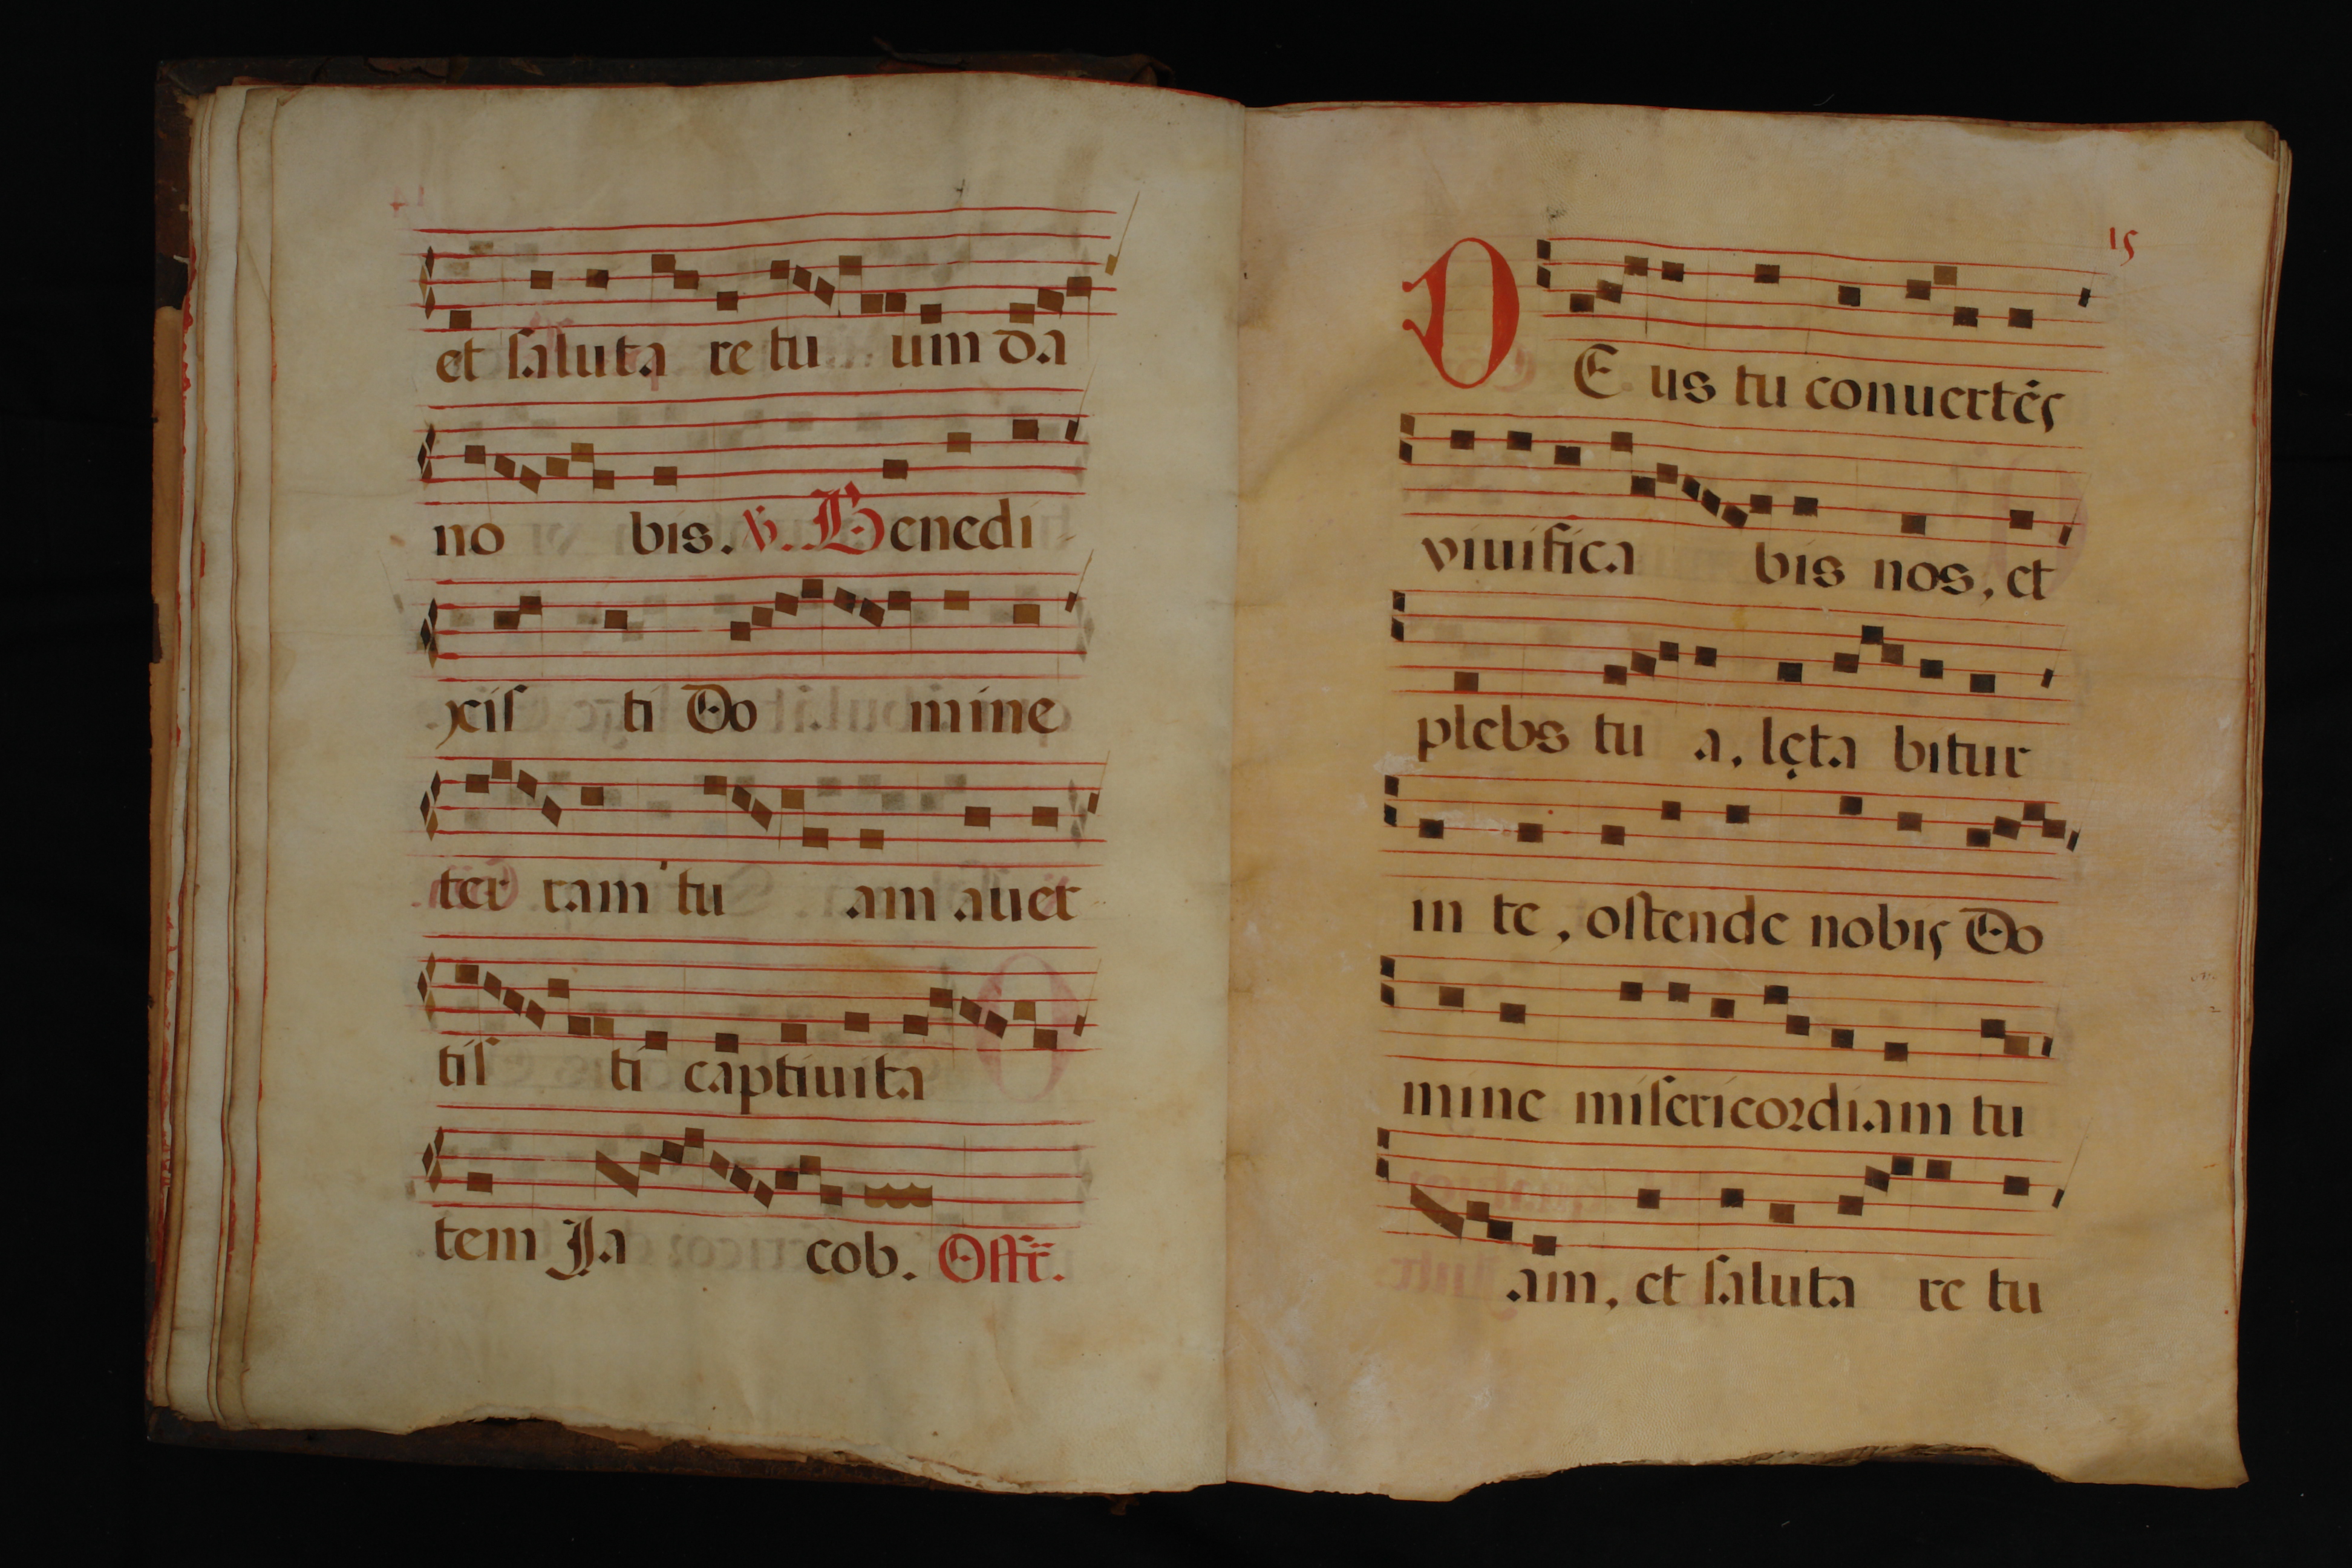 et saluta re tu um da
no bis. ℣. Benedi
xis ti Do mine
ter ram tu am auer
tis ti captiuita
tem Ja cob. Offr̃.
15
DE us tu conuertẽs
viuifica bis nos, et
plebs tu a, lęta bitur
in te, ostende nobis Do
mine misericordiam tu
am, et saluta re tu